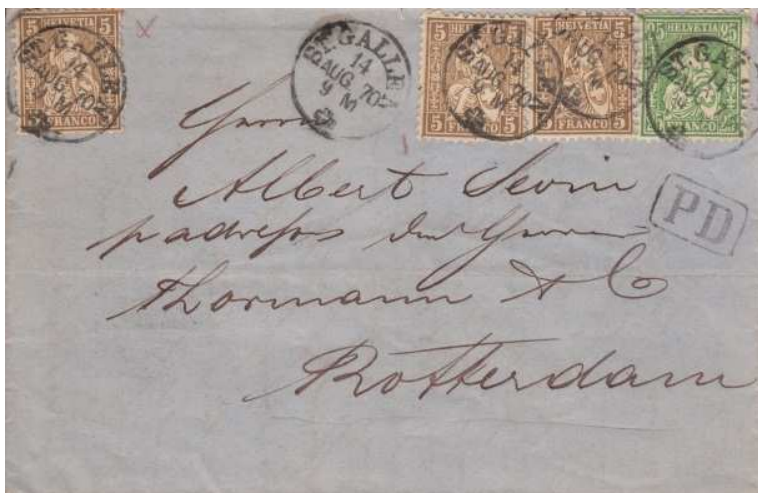 5 HELVETIA 5
5 FRANCO 5
ST. GALLEN
14
AUG. 70
9 M
ST. GALLEN
14
AUG. 70
9 M
5 HELVETIA 5
5 FRANCO 5
ST. GALLEN
14
AUG. 70
9 M
5 HELVETIA 5
5 FRANCO 5
25 HELVETIA 25
ST. GALLEN
14
PD
Herrn
Albert Sevin
p adresse den Herren
Thormann & Co
Rotterdam